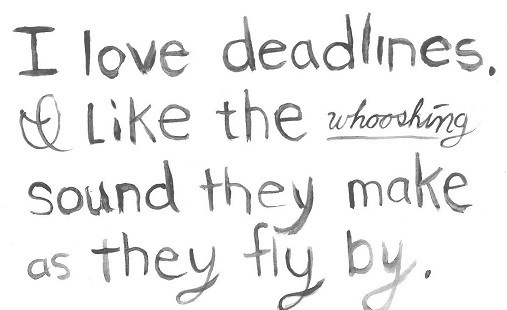 I love deadlines.
I Like the whooshing
sound they make
as they fly by.